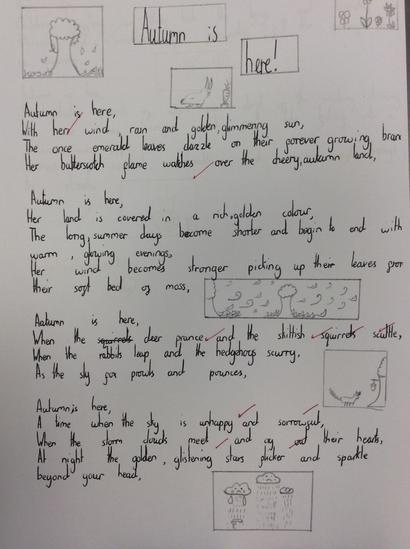 Autumn is
here!
Autumn is here,
With her wind, rain and golden, glimmering sun,
The once emerald leaves dazzle on their forever growing bran
Her butterscotch flame watches over the cheery, autumn land,
Autumn is here,
Her land is covered in a rich, golden colour,
The long, summer days become shorter and begin to end with
warm, glowing evenings,
Her wind becomes stronger picking up their leaves from
their soft bed of moss,
Autumn is here,
When the squirrels deer prance and the skittish squirrels scuttle,
When the rabbits leap and the hedgehogs scurry,
As the sly fox prowls and pounces,
Autumn is here,
A time when the sky is unhappy and sorrowful,
When the storm clouds meet and cry out their hearts,
At night the golden, glistening stars flicker and sparkle
beyond your head,